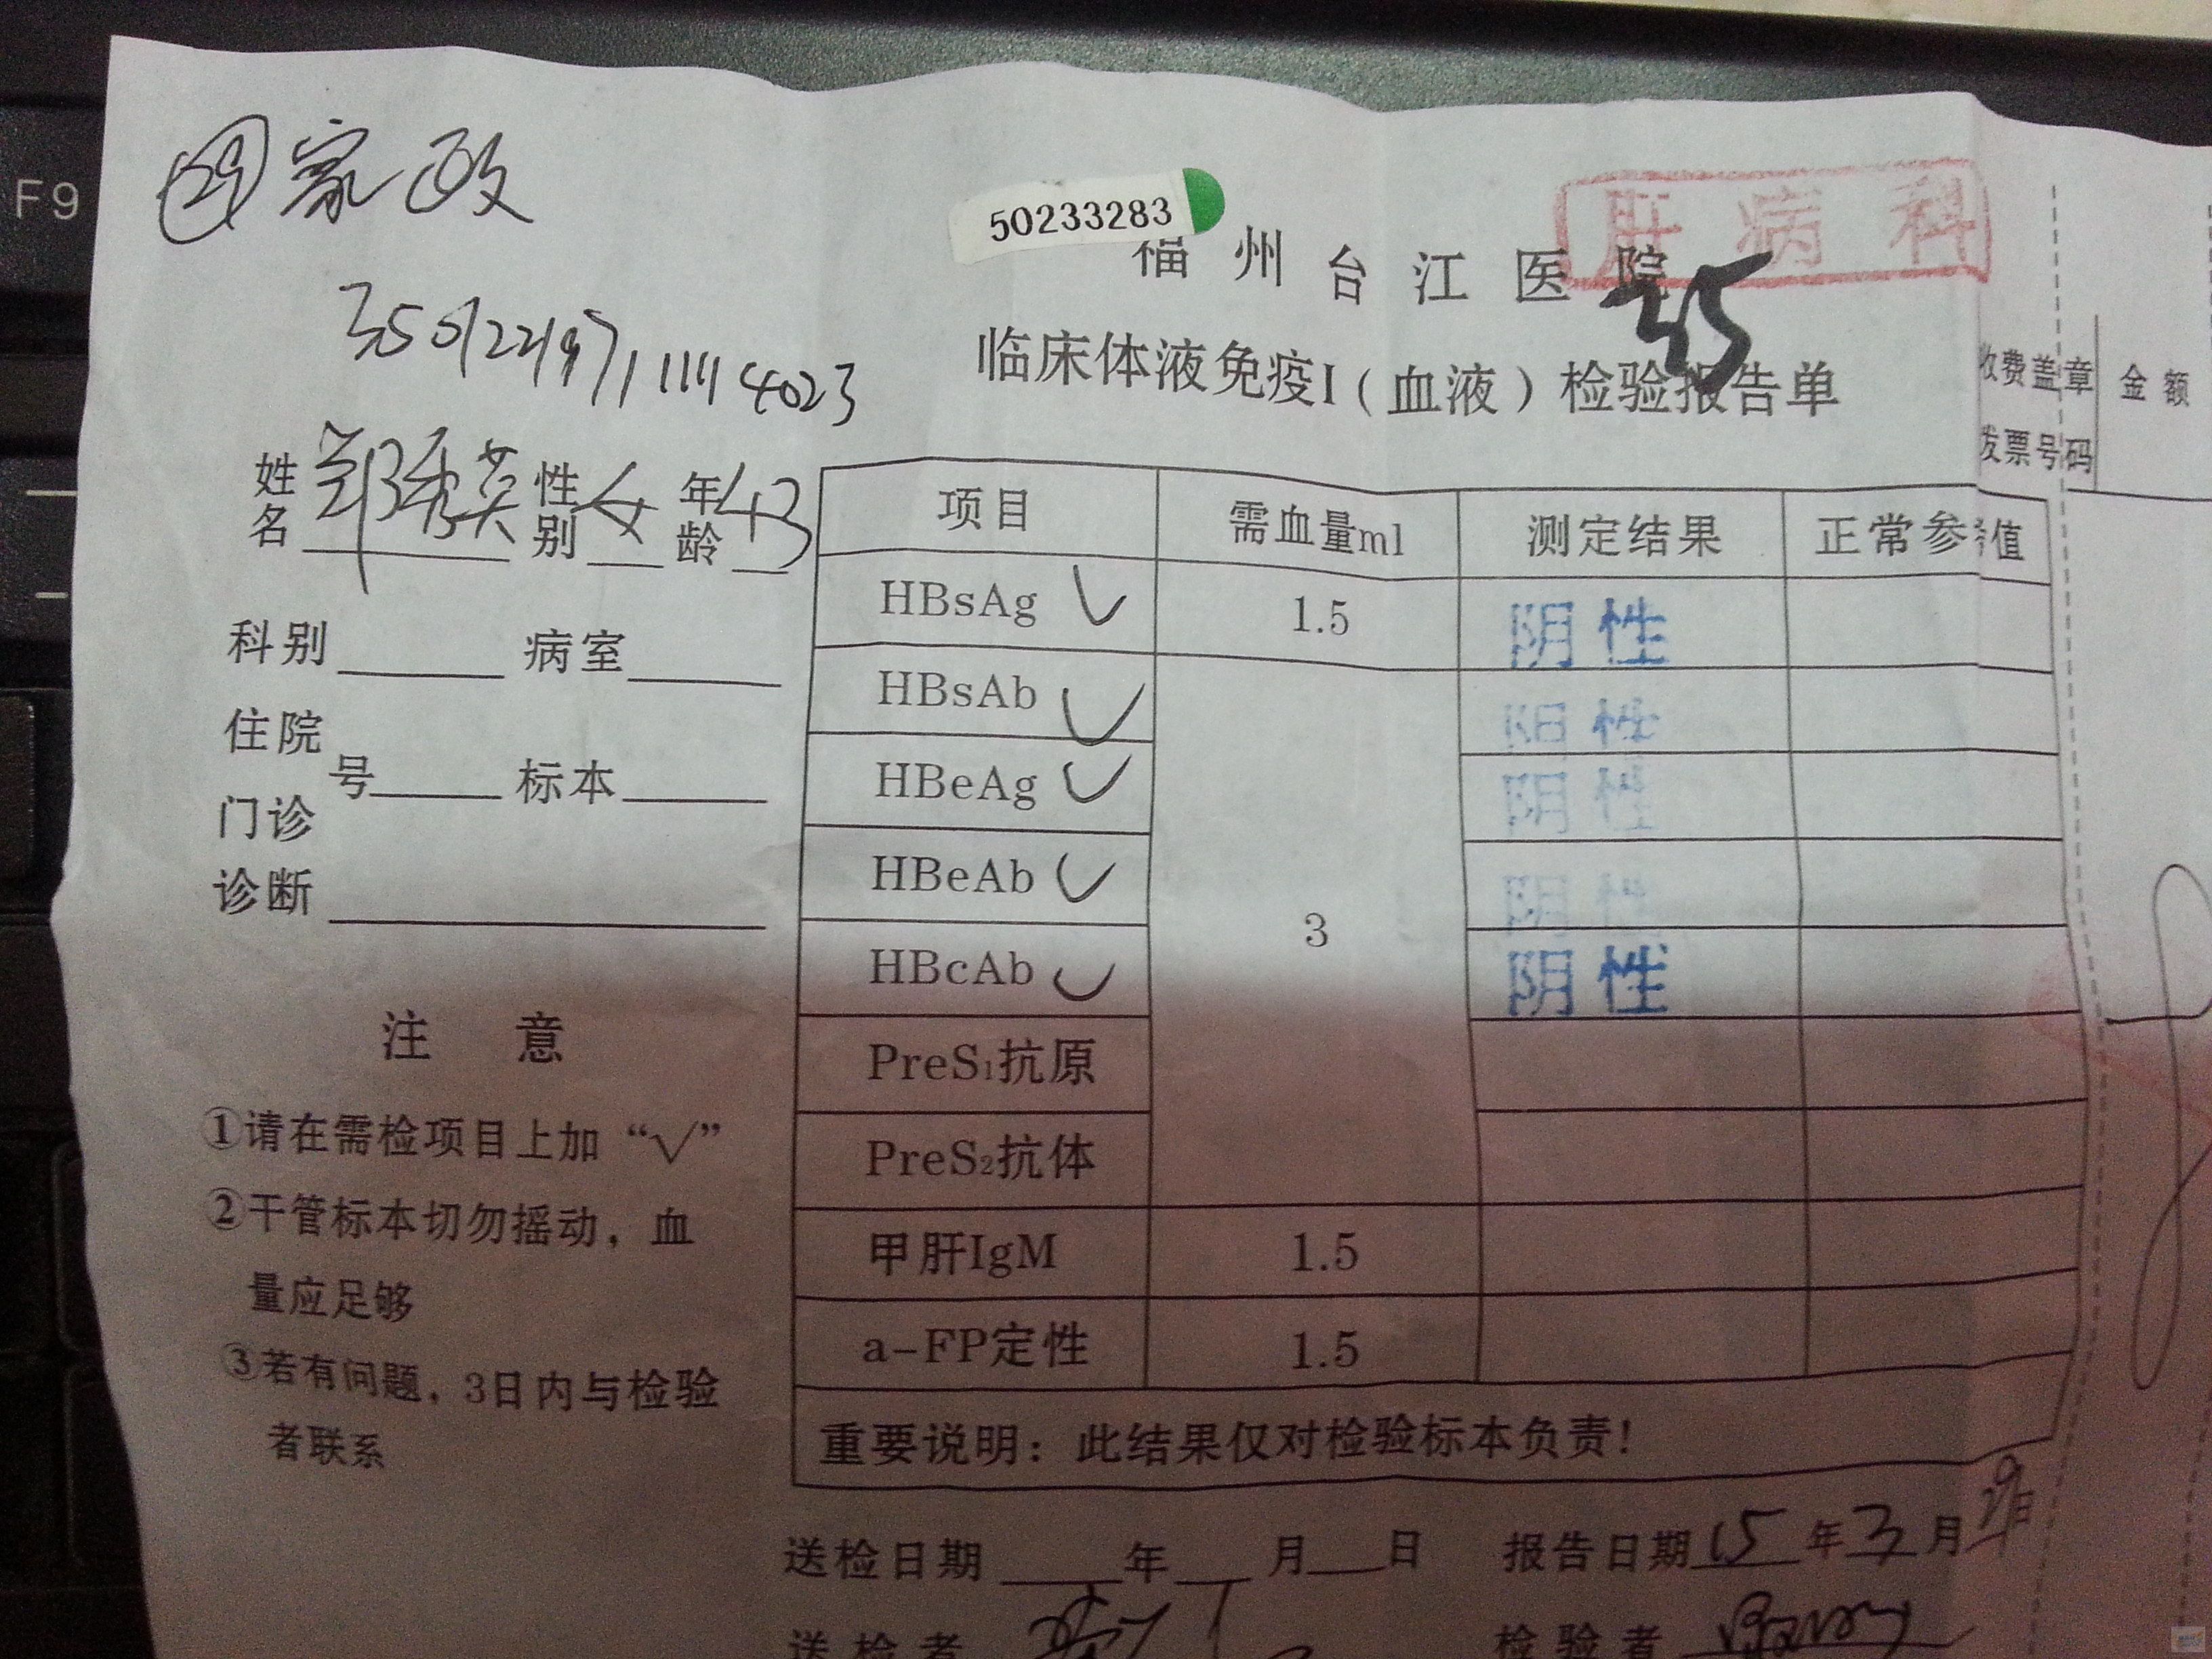 F9
29 家政
50233283
肝病科
福州台江医院
45
350122197111114023
临床体液免疫I(血液)检验报告单
收费盖章 金额
发票号码
姓名 郑秀英 性别 女 年龄 43
科别 病室
住院
门诊 号 标本
诊断
项目 需血量ml 测定结果 正常参考值
HBsAg √ 1.5 阴性
HBsAb √ 阳性
HBeAg √ 阴性
HBeAb √ 阴性
HBcAb √ 3 阴性
PreS₁抗原
PreS₂抗体
甲肝IgM 1.5
a-FP定性 1.5
重要说明：此结果仅对检验标本负责！
注意
①请在需检项目上加“√”
②干管标本切勿摇动，血
量应足够
③若有问题，3日内与检验
者联系
送检日期 年 月 日 报告日期 15 年 3 月 29 日
送检者 检验者